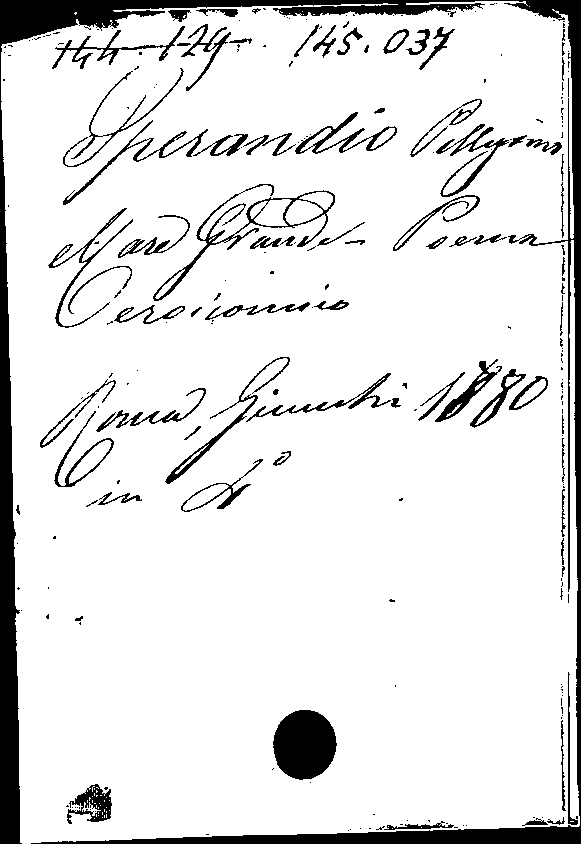 144-129 145.037
Sperandio Pellegrino
Mare Grande - Poema
Eroicomico
Roma, 1880
in 4º